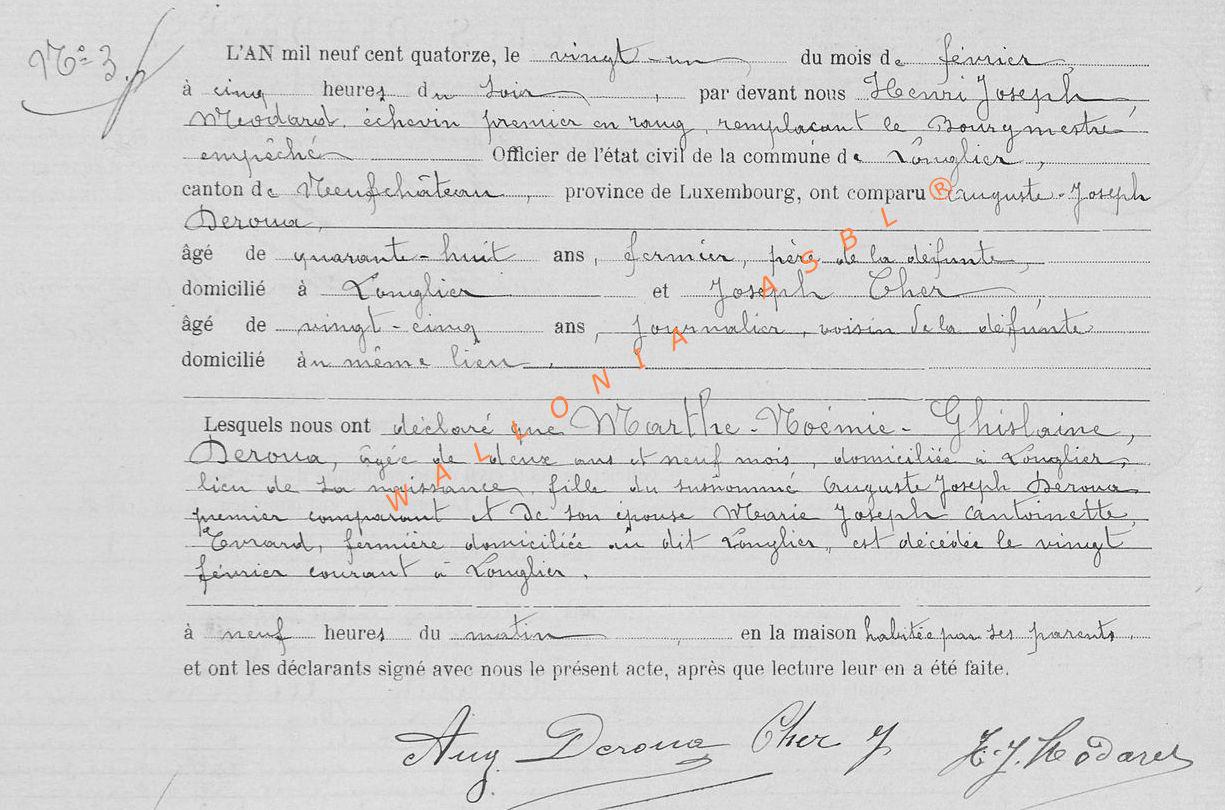 N° 3.
L'AN mil neuf cent quatorze, le vingt-un du mois de février,
à cinq heures du soir, par devant nous Henri Joseph
Médard, échevin premier en rang, remplaçant le Bourgmestre
empêché Officier de l'état civil de la commune de Longlier,
canton de Neufchâteau, province de Luxembourg, ont comparu Auguste-Joseph
Deroua,
âgé de quarante-huit ans, fermier, père de la défunte,
domicilié à Longlier et Joseph Cher,
âgé de vingt-cinq ans, journalier, voisin de la défunte
domicilié au même lieu.
Lesquels nous ont déclaré que Marthe-Noémie-Ghislaine,
Deroua, âgée de deux ans et neuf mois, domiciliée à Longlier,
lieu de sa naissance, fille du susnommé Auguste Joseph Deroua
premier comparant et de son épouse Marie Joseph Antoinette
Evrard, fermière domiciliée au dit Longlier, est décédée le vingt
février courant à Longlier.
à neuf heures du matin, en la maison habitée par ses parents.
et ont les déclarants signé avec nous le présent acte, après que lecture leur en a été faite.
Aug Deroua Cher J H. J. Médard
WALLONIA ASBL ®